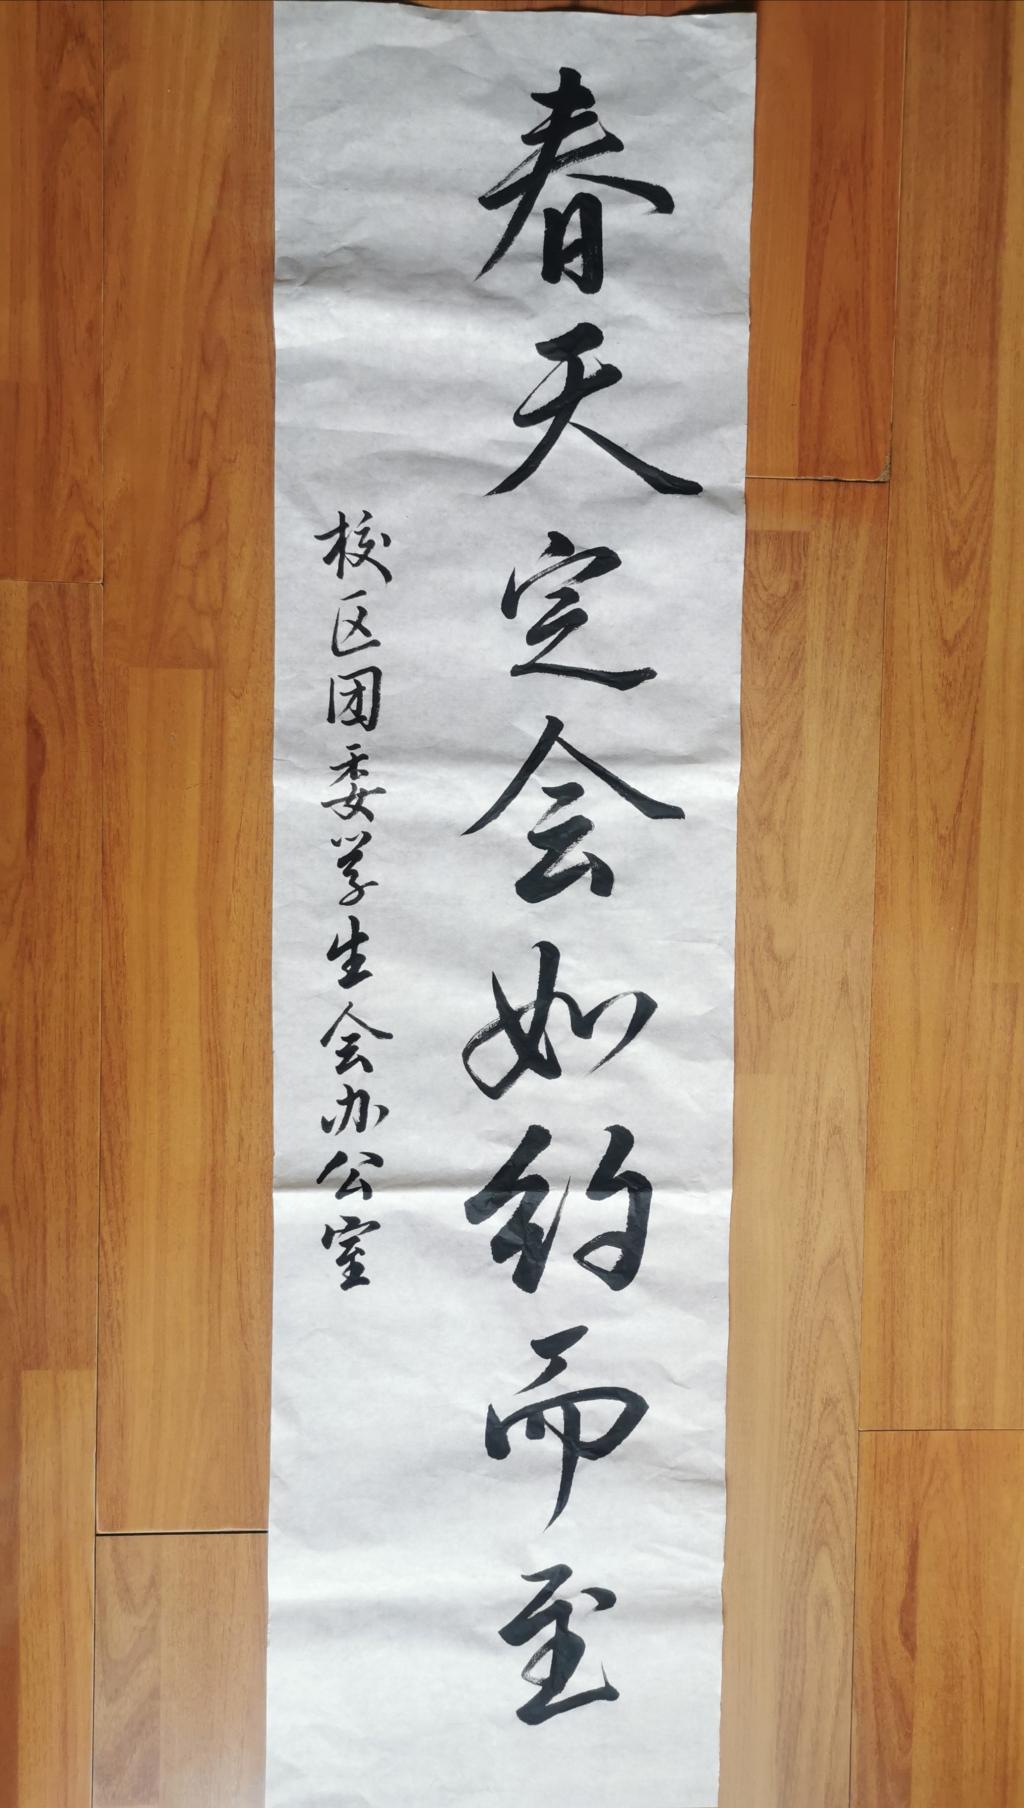 春天定会如约而至
校区团委学生会办公室